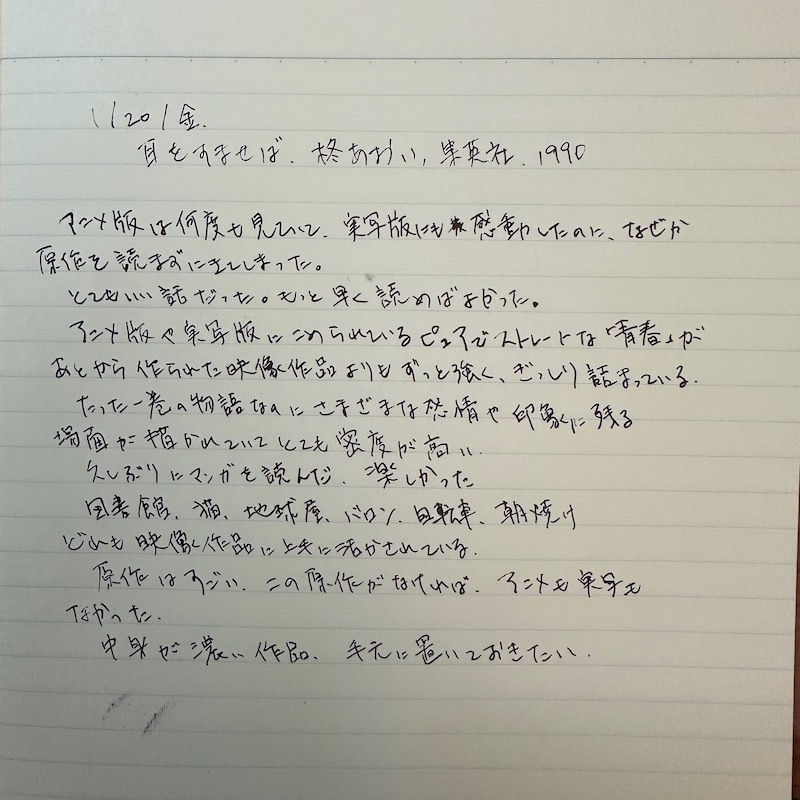 1/20/金.
耳をすませば、柊あおい, 集英社. 1990
アニメ版は何度も見ていて、実写版にも感動したのに、なぜか
原作を読まずにきてしまった。
とてもいい話だった。もっと早く読めばよかった。
アニメ版や実写版にこめられているピュアでストレートな「青春」が
あとから作られた映像作品よりもずっと強く、ぎっしり詰まっている.
たった一巻の物語なのにさまざまな感情や印象に残る
場面が描かれていてとても密度が高い.
久しぶりにマンガを読んだ. 楽しかった
図書館、猫、地球屋、バロン、自転車、朝焼け
どれも映像作品に上手に活かされている.
原作はすごい. この原作がなければ、アニメも実写も
なかった.
中身が濃い作品、手元に置いておきたい.